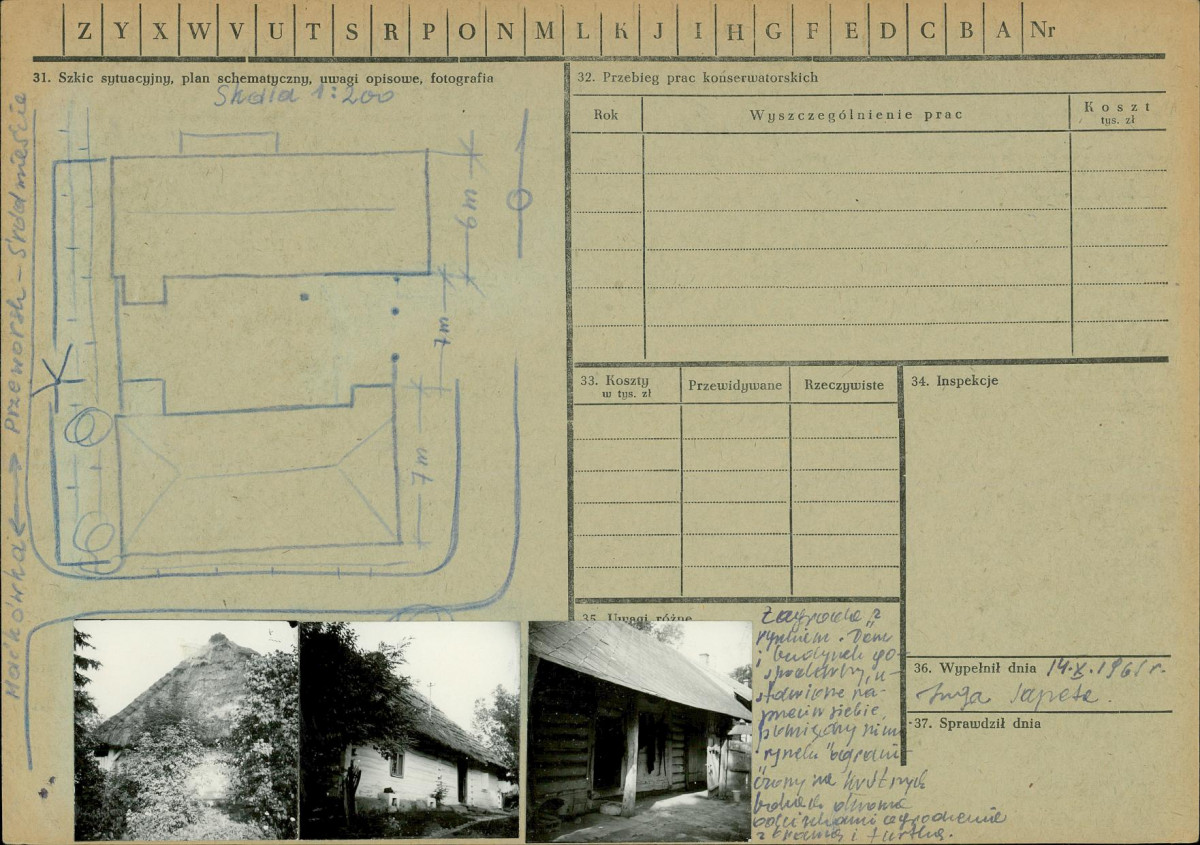 Z Y X W V U T S R P O N M L K J I H G F E D C B A Nr
31. Szkic sytuacyjny, plan schematyczny, uwagi opisowe, fotografia
Skala 1:200
Maćkówka ← → Przeworsk – Śródmieście
6 m
7 m
7 m
32. Przebieg prac konserwatorskich
Rok
Wyszczególnienie prac
Koszt
tys. zł
33. Koszty
w tys. zł
Przewidywane
Rzeczywiste
34. Inspekcje
35. Uwagi różne
Zagroda z
rynkiem. Dom
i budynek go-
spodarczy u-
stawione na-
przeciw siebie,
pomiędzy nimi
"rynek" ograni-
czony na krótszych
bokach dwoma
odcinkami ogrodzenia
z bramą i furtką.
36. Wypełnił dnia 14.X.1961 r.
Sapeta
37. Sprawdził dnia